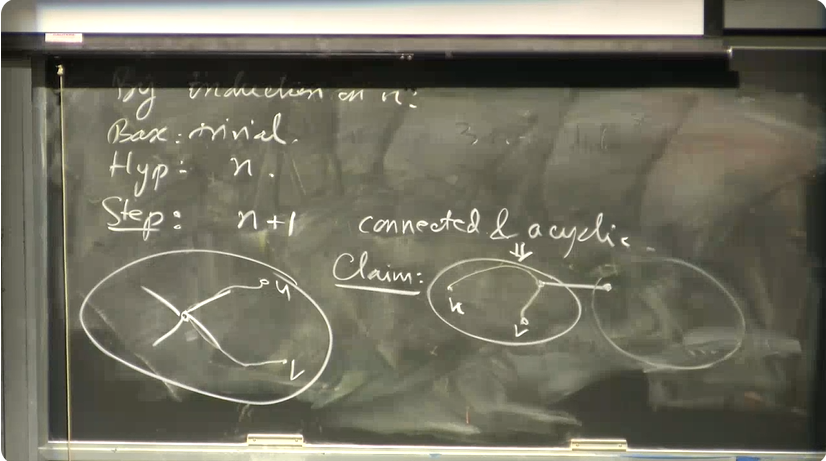 By induction on n:
Base: trivial.
Hyp: n.
Step: n+1 connected & acyclic
Claim: ⇓
u
v
u
v